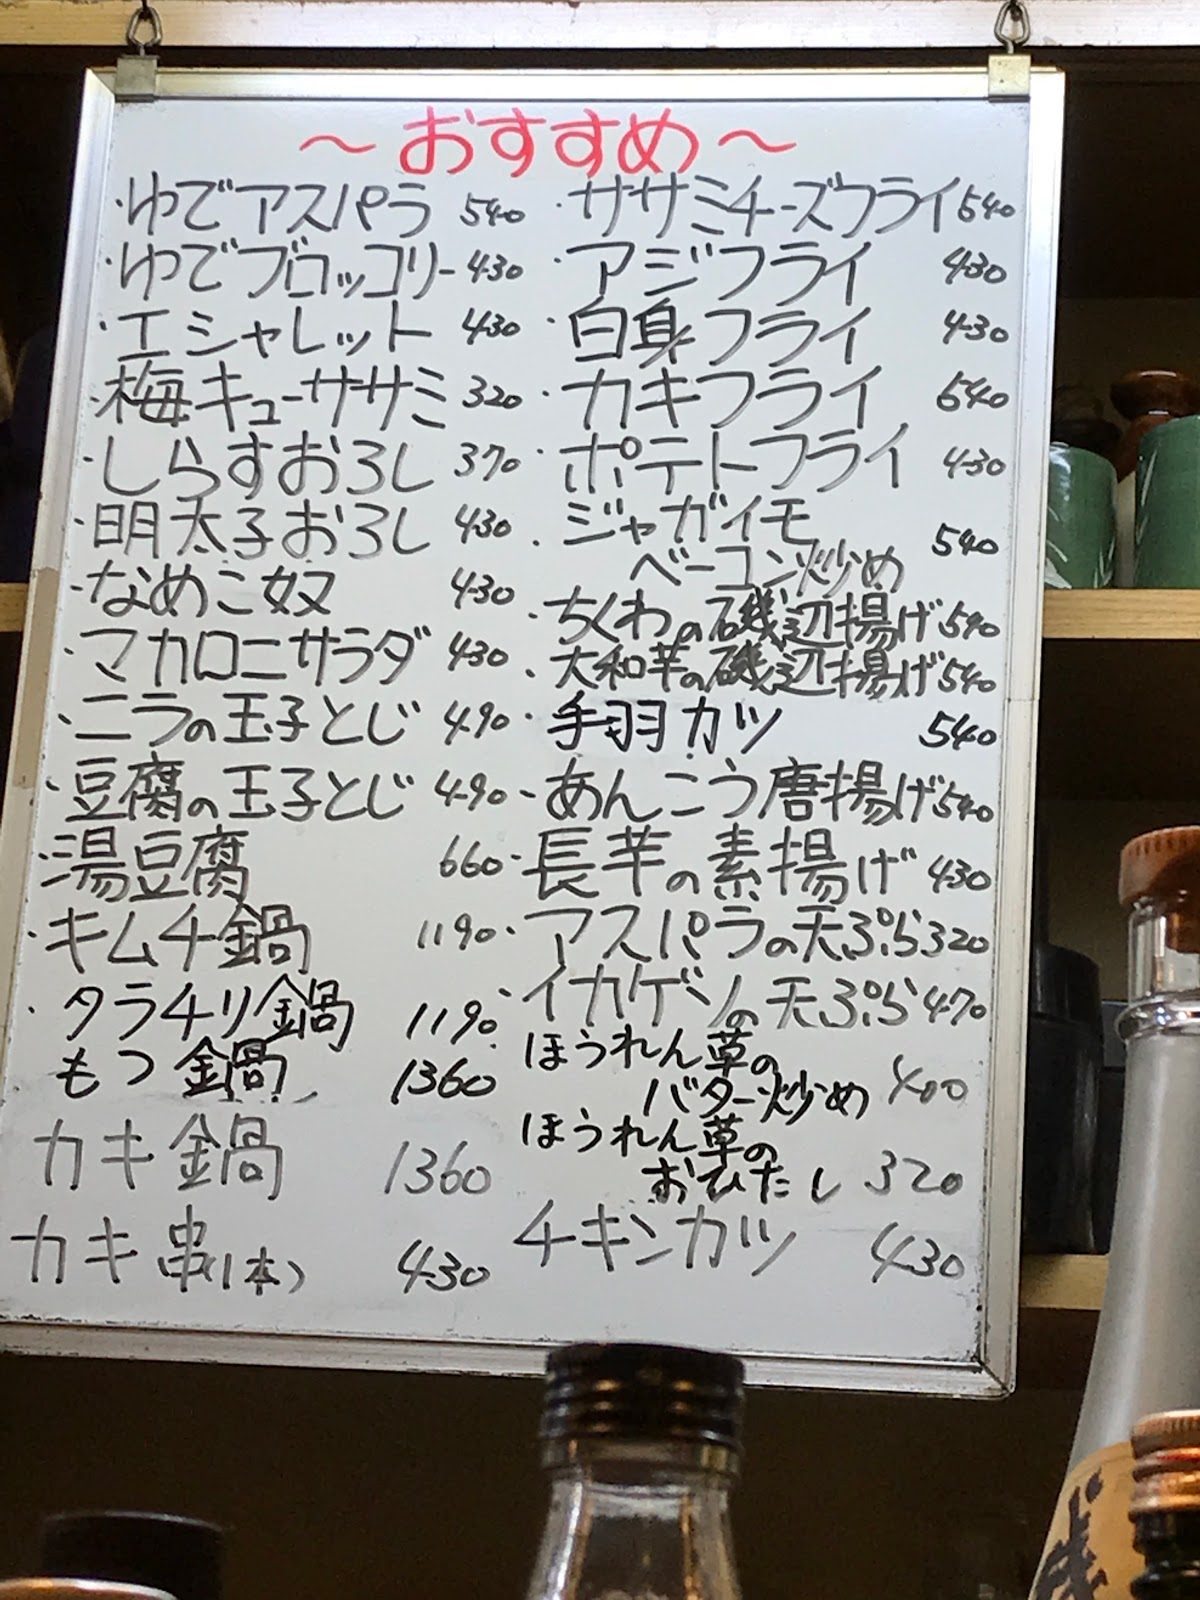 ～おすすめ～
・ゆでアスパラ 540
・ゆでブロッコリー 430
・エシャレット 430
・梅キューササミ 320
・しらすおろし 370
・明太子おろし 430
・なめこ奴 430
・マカロニサラダ 430
・ニラの玉子とじ 490
・豆腐の玉子とじ 490
・湯豆腐 660
・キムチ鍋 1190
・タラチリ鍋 1190
もつ鍋 1360
カキ鍋 1360
カキ串(1本) 430
・ササミチーズフライ 540
・アジフライ 430
・白身フライ 430
・カキフライ 540
・ポテトフライ 430
・ジャガイモ
ベーコン炒め 540
・ちくわの磯辺揚げ 540
・大和芋の磯辺揚げ 540
・手羽カツ 540
・あんこう唐揚げ 540
・長芋の素揚げ 430
・アスパラの天ぷら 320
・イカゲソの天ぷら 470
ほうれん草の
バター炒め 400
ほうれん草の
おひたし 320
チキンカツ 430